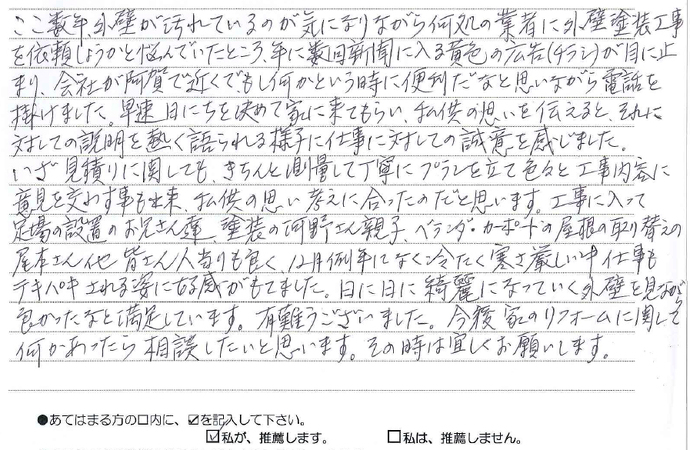 ここ数年、外壁が汚れているのが気になりながら何処の業者に外壁塗装工事
を依頼しようかと悩んでいたところ、年に数回新聞に入る黄色の広告(チラシ)が目に止
まり、会社が阿賀で近くでもし何かという時に便利だなと思いながら電話を
掛けました。早速日にちを決めて家に来てもらい、私供の想いを伝えると、それに
対しての説明を熱く語られる様子に仕事に対しての誠意を感じました。
いざ見積りに関しても、きちんと測量して丁寧にプランを立て色々と工事内容に
意見を交わす事も出来、私供の思い考えに合ったのだと思います。工事に入って
足場の設置のお兄さん達、塗装の河野さん親子、ベランダ・カーポートの屋根の取り替えの
尾本さん他皆さん人当りも良く、12月例年になく冷たく寒さ厳しい中仕事も
テキパキされる姿に好感がもてました。日に日に綺麗になっていく外壁を見ながら
良かったなと満足しています。有難うございました。今後家のリフォームに関して
何かあったら相談したいと思います。その時は宜しくお願いします。
●あてはまる方の口内に、☑を記入して下さい。
☑私が、推薦します。 □私は、推薦しません。